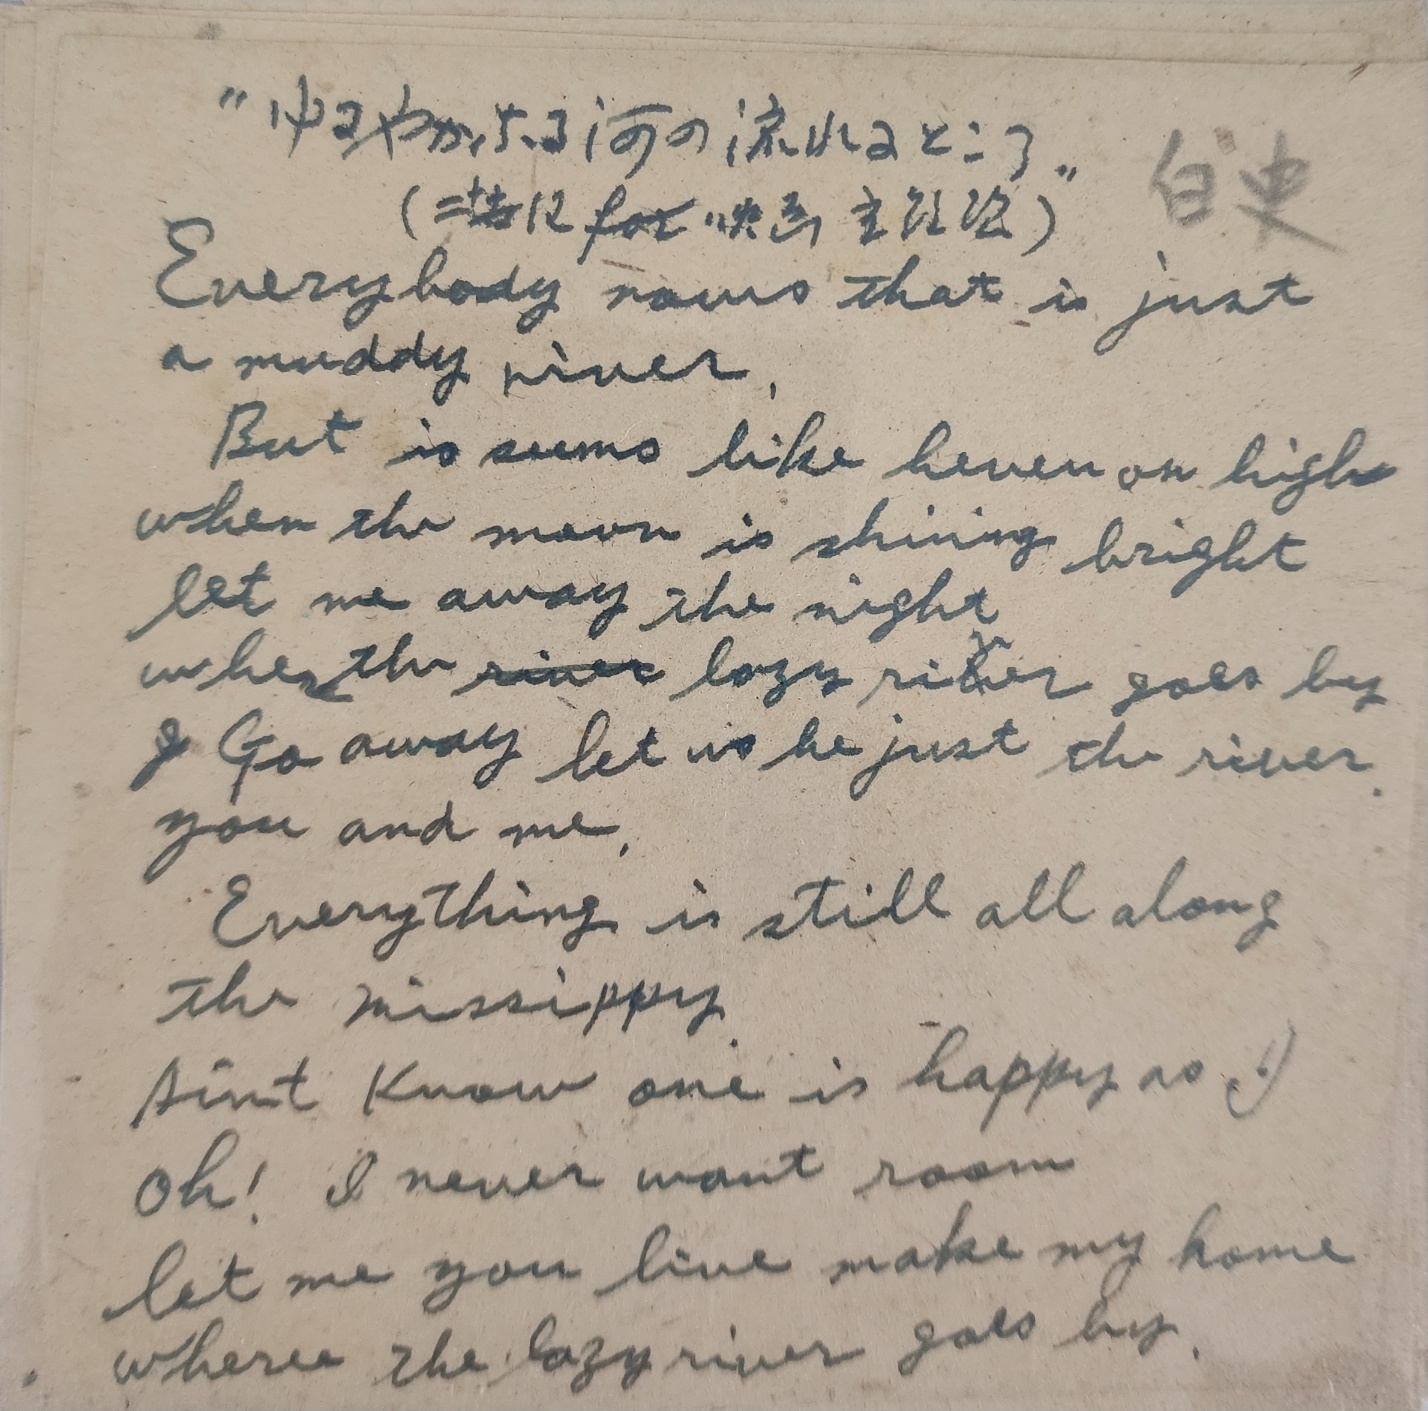 "ゆるやかなる河の流れるところ"
白史
(二世に for "映画主題歌)
Everybody nows that is just
a muddy river,
But is seems like heven on high
when the moon is shining bright
let me away the night
when the river lazy river goes by
Go away let us be just the river.
you and me,
Everything is still all along
the missippy
Aint Know one is happy as I
Oh! I never want room
let me you live make my home
wheree the lazy river goes by.